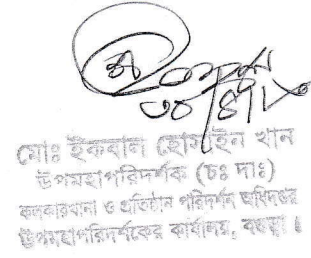 মোঃ ইকবাল হোসাইন খান
উপমহাপরিদর্শক (চঃ দাঃ)
কলকারখানা ও প্রতিষ্ঠান পরিদর্শন অধিদপ্তর
উপমহাপরিদর্শকের কার্যালয়, বগুড়া ।